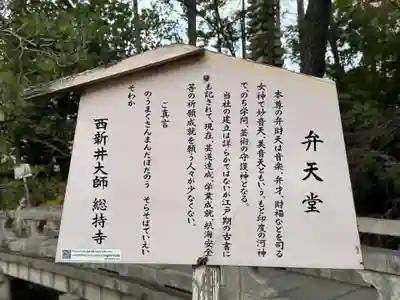 弁天堂
本尊の弁財天は音楽、弁才、財福などを司る
女神で妙音天、美音天ともいう。もと印度の河神
で、のち学問、芸術の守護神となる。
当社の建立は詳らかではないが江戸期の古書に
も記されて、現在、芸道達成、学業成就、航海安全
等の祈願成就を願う人々が少なくない。
ご真言
のうまくさんまんだぼだのう そらそばていえい
そわか
西新井大師 総持寺